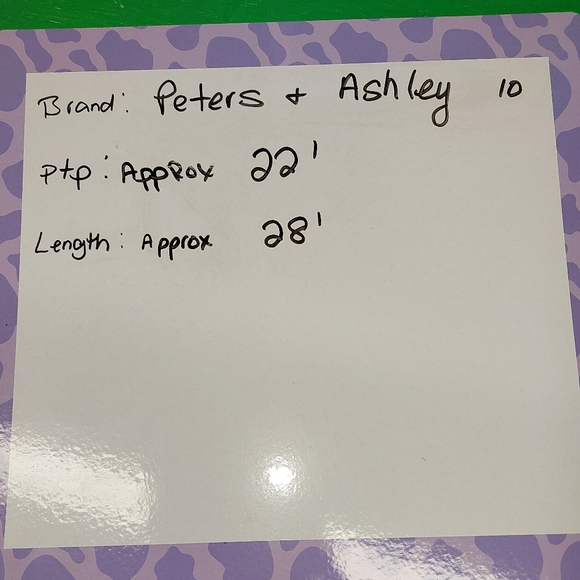 Brand: Peters + Ashley 10
Ptp: Approx 22'
Length: Approx 28'